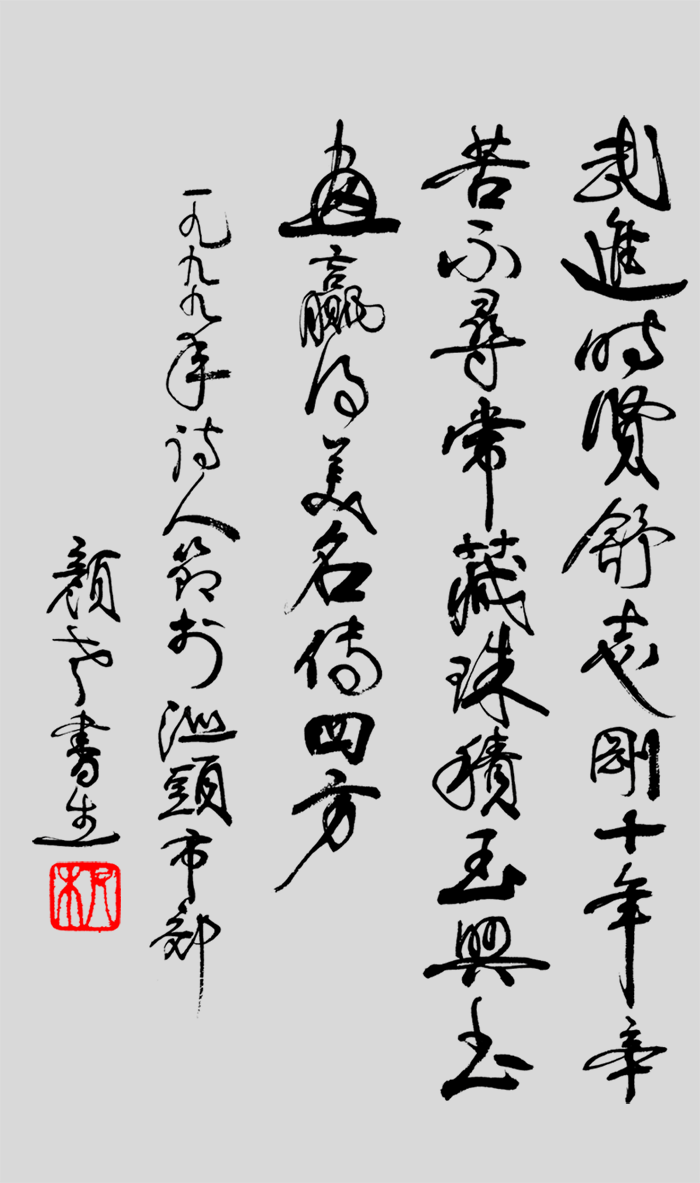 武進時贤舒志剛十年辛
苦不尋常藏珠積玉興书
画贏得美名传四方
一九九九年诗人節於汕頭市郊
顏書